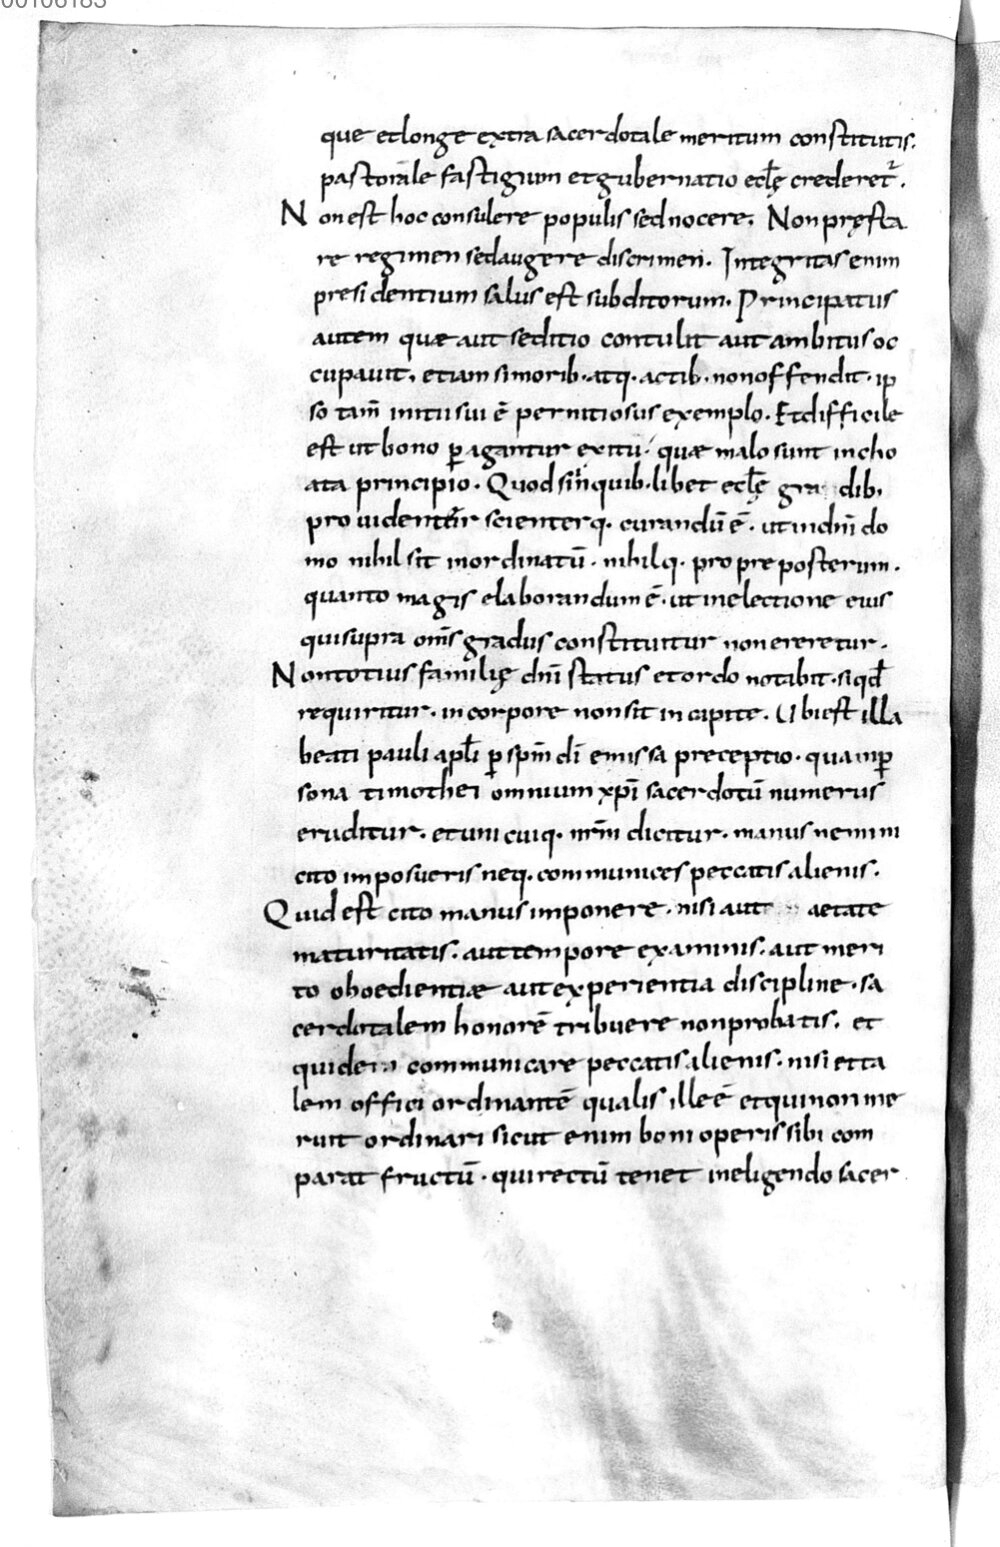 00106183
que et longe extra sacerdotale meritum constitutis.
pastorale fastigium et gubernatio eclę crederet̃.
Non est hoc consulere populis sed nocere. Non pręsta
re regimen sed augere discrimen. Integritas enim
presidentium salus est subditorum. Principatus
autem quae aut seditio contulit aut ambitus oc
cupauit. etiam si morib· atq· actib· non offendit· ip
so tam̄ initii sui ē pernitiosus exemplo. Et difficile
est ut bono ꝑagantur exitu· quae malo sunt incho
ata principio. Quod si in quib·libet eclę dib·
prouidenter scienterq· curandū ē· ut in dnī do
mo nihil sit inordinatū· nihilq· propreposterum.
quanto magis elaborandum ē· ut in electione eius
qui supra om̄s gradus constituitur non erretur.
Non totius familię dnī status et ordo notabit· si qđ
requiritur· in corpore non sit in capite. Ubi est illa
beati pauli aplī ꝑ spm̄ dī emissa preceptio· qua in ꝑ
sona timothei omnium xpī sacerdotū numerus
eruditur· et unicuiq· nrm̄ dicitur· manus nemini
cito imposueris neq· communices peccatis alienis.
Quid est cito manus imponere· nisi aut aetate
maturitatis· aut tempore examinis· aut meri
to oboedientiae aut experientia discipline· sa
cerdotalem honorē tribuere non probatis. et
quidem communicare peccatis alienis· nisi et ta
lem offici ordinantē qualis ille ē et qui non me
ruit ordinari sicut enim boni operis sibi com
parat fructū· qui rectū tenet in eligendo sacer